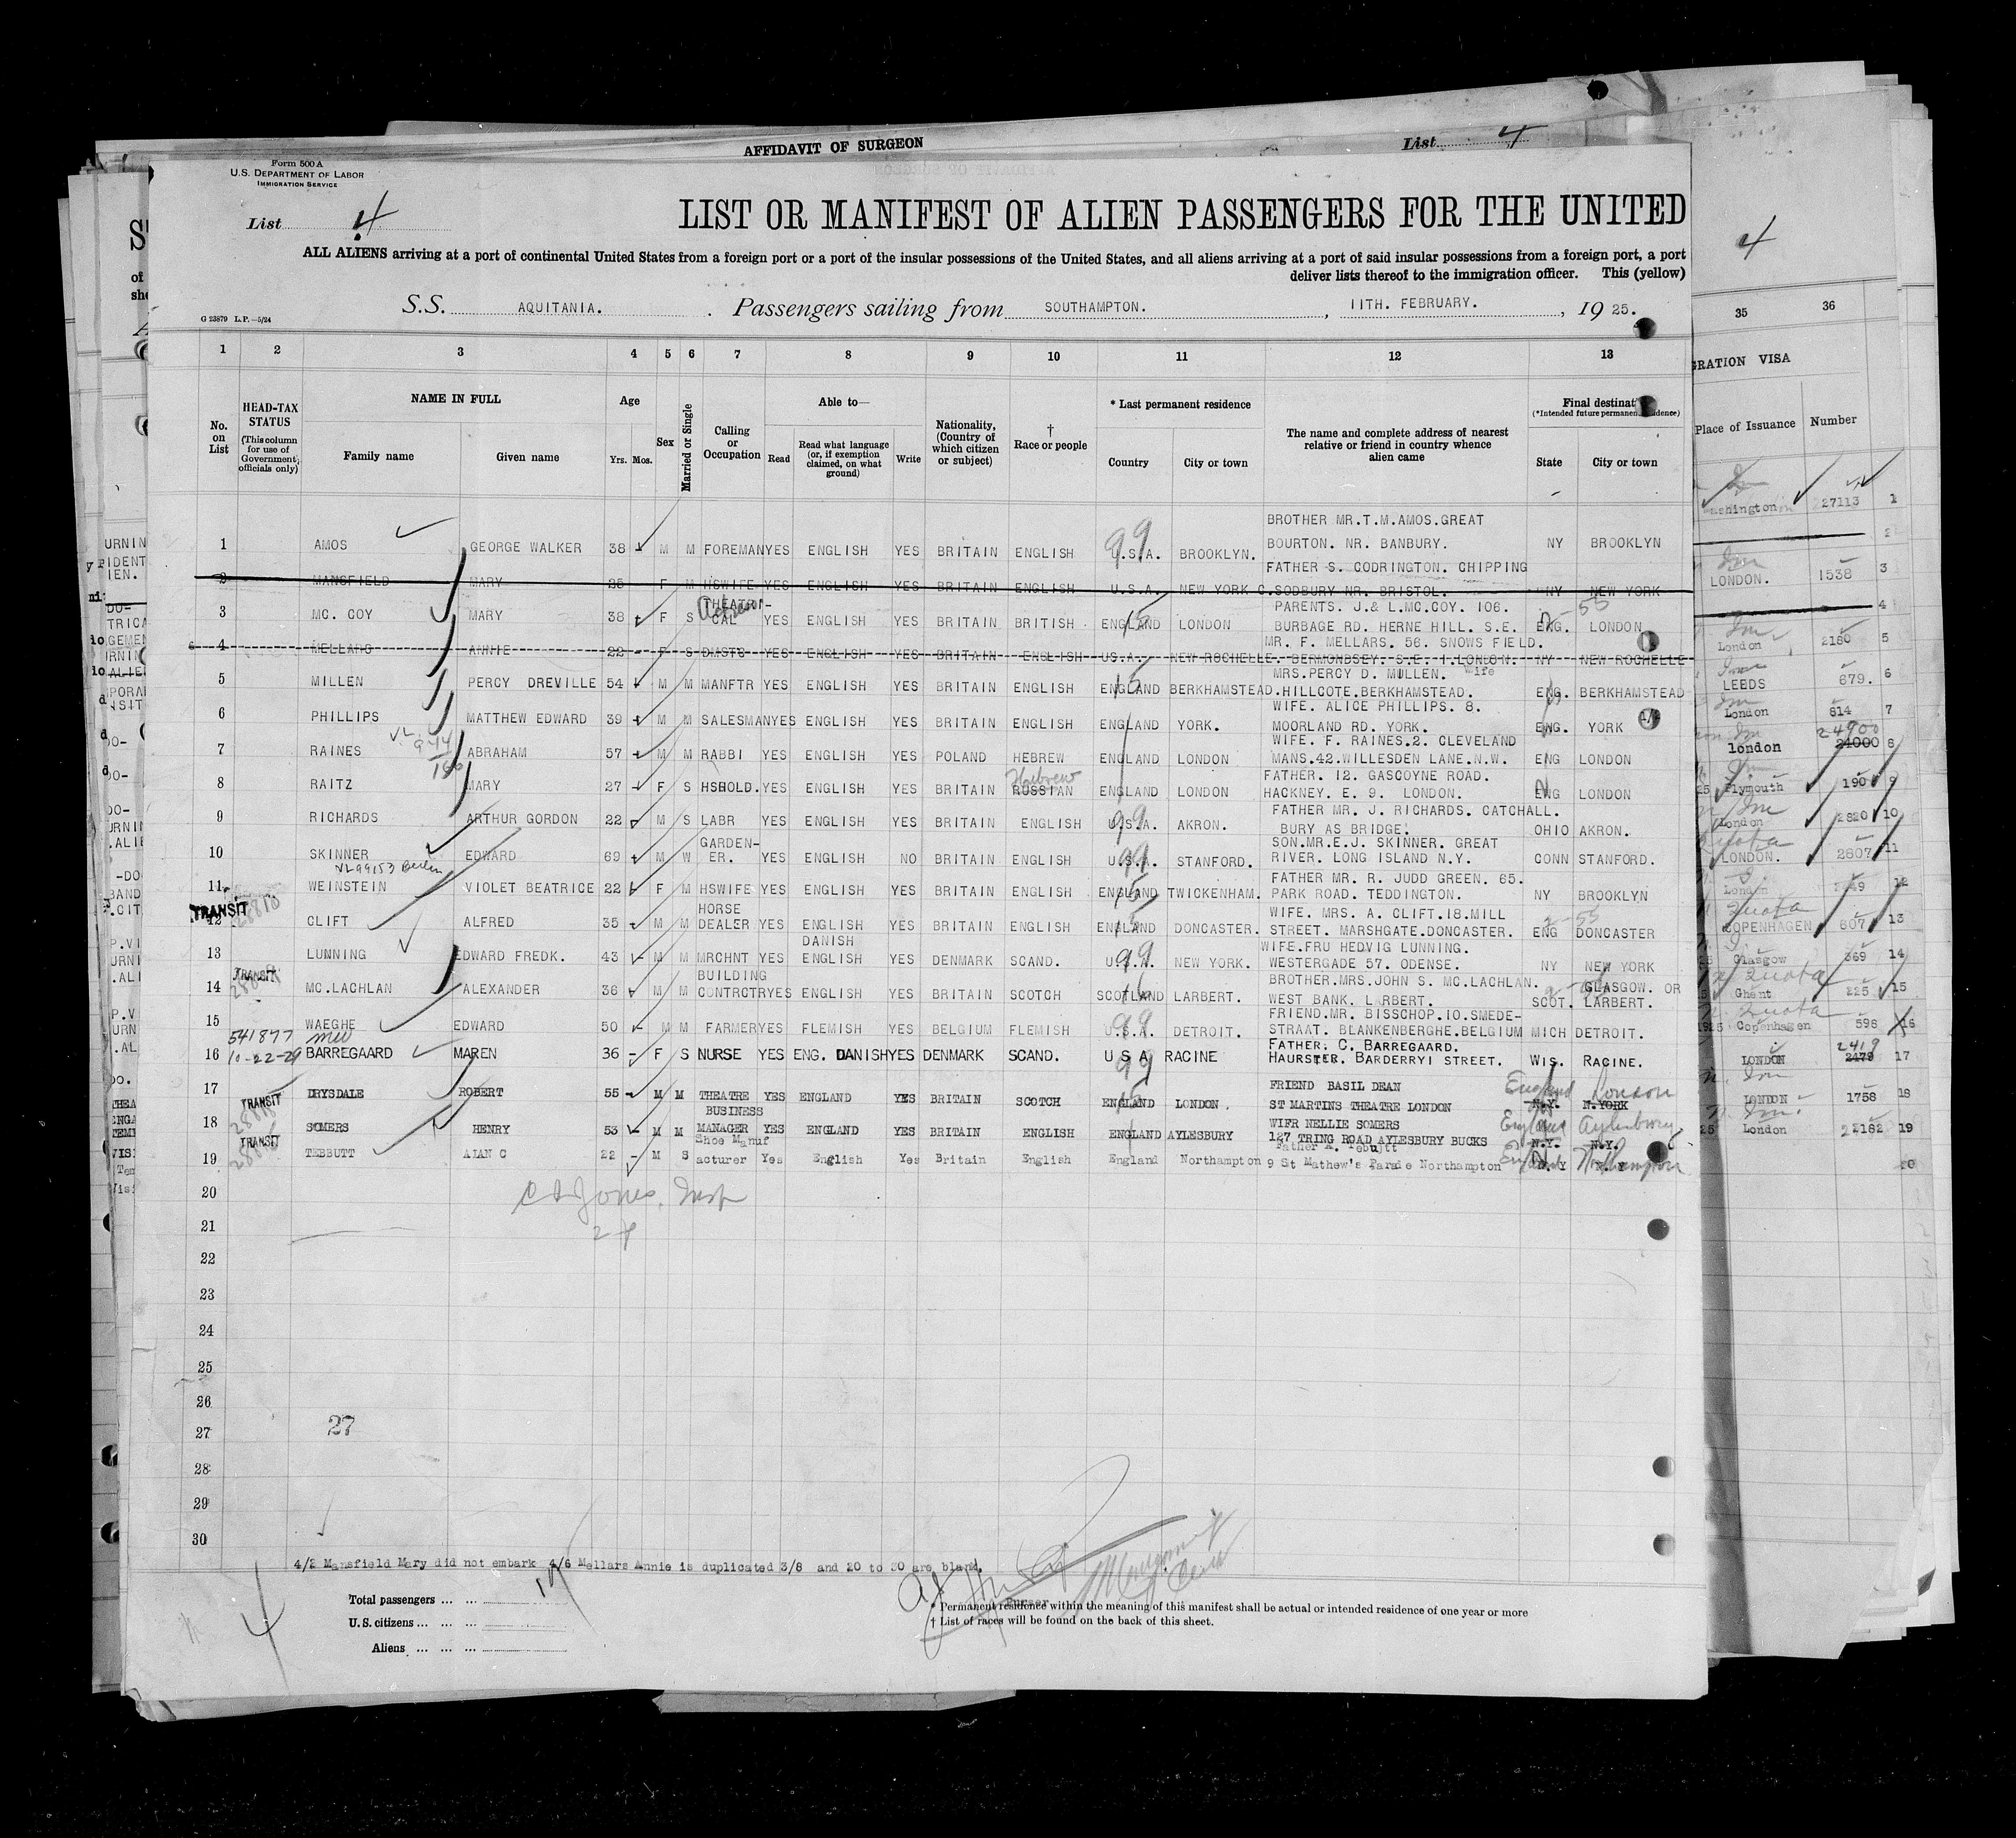 AFFIDAVIT OF SURGEON
List 4
Form 500 A
U.S. DEPARTMENT OF LABOR
IMMIGRATION SERVICE
List 4
LIST OR MANIFEST OF ALIEN PASSENGERS FOR THE UNITED
ALL ALIENS arriving at a port of continental United States from a foreign port or a port of the insular possessions of the United States, and all aliens arriving at a port of said insular possessions from a foreign port, a port
deliver lists thereof to the immigration officer. This (yellow)
S.S. AQUITANIA. Passengers sailing from SOUTHAMPTON. , 11TH. FEBRUARY. , 19 25.
G 23879 L.P.—5/24
1 2 3 4 5 6 7 8 9 10 11 12 13
No. on List
HEAD-TAX STATUS (This column for use of Government officials only)
NAME IN FULL
Family name
Given name
Age
Yrs. Mos.
Sex
Married or Single
Calling or Occupation
Able to—
Read
Read what language (or, if exemption claimed, on what ground)
Write
Nationality, (Country of which citizen or subject)
† Race or people
* Last permanent residence
Country
City or town
The name and complete address of nearest relative or friend in country whence alien came
Final destinat
(*Intended future permanen
State
City or town
1 AMOS GEORGE WALKER 38 M M FOREMAN YES ENGLISH YES BRITAIN ENGLISH U.S.A. BROOKLYN. BROTHER MR.T.M.AMOS.GREAT BOURTON. NR. BANBURY. NY BROOKLYN
2 MANSFIELD MARY 25 F M HSWIFE YES ENGLISH YES BRITAIN ENGLISH U.S.A. NEW YORK C. FATHER S. CODRINGTON. CHIPPING SODBURY NR. BRISTOL. NY NEW YORK
3 MC. COY MARY 38 F S THEATRI-CAL Actress YES ENGLISH YES BRITAIN BRITISH ENGLAND LONDON PARENTS. J.& L.MC.COY. 106. BURBAGE RD. HERNE HILL. S.E. ENG. LONDON
4 MELLARS ANNIE 22 F S DMSTC YES ENGLISH YES BRITAIN ENGLISH US.A. NEW ROCHELLE. MR. F. MELLARS. 56. SNOWS FIELD. BERMONDSEY. S.E. 1.LONDON. NY NEW ROCHELLE
5 MILLEN PERCY DREVILLE 54 M M MANFTR YES ENGLISH YES BRITAIN ENGLISH ENGLAND BERKHAMSTEAD. MRS.PERCY D. MULLEN. Wife HILLCOTE.BERKHAMSTEAD. ENG. BERKHAMSTEAD
6 PHILLIPS MATTHEW EDWARD 39 M M SALESMAN YES ENGLISH YES BRITAIN ENGLISH ENGLAND YORK. WIFE. ALICE PHILLIPS. 8. MOORLAND RD. YORK. ENG. YORK
7 RAINES ABRAHAM 57 M M RABBI YES ENGLISH YES POLAND HEBREW ENGLAND LONDON WIFE. F. RAINES.2. CLEVELAND MANS.42.WILLESDEN LANE.N.W. ENG LONDON
8 RAITZ MARY 27 F S HSHOLD. YES ENGLISH YES BRITAIN RUSSIAN Hebrew ENGLAND LONDON FATHER. 12. GASCOYNE ROAD. HACKNEY. E. 9. LONDON. ENG LONDON
9 RICHARDS ARTHUR GORDON 22 M S LABR YES ENGLISH YES BRITAIN ENGLISH U.S.A. AKRON. FATHER MR. J. RICHARDS. CATCHALL. BURY AS BRIDGE. OHIO AKRON.
10 SKINNER EDWARD 69 M W GARDEN-ER. YES ENGLISH NO BRITAIN ENGLISH U.S.A. STANFORD. SON.MR.E.J. SKINNER. GREAT RIVER. LONG ISLAND N.Y. CONN STANFORD.
11 WEINSTEIN VIOLET BEATRICE 22 F M HSWIFE YES ENGLISH YES BRITAIN ENGLISH ENGLAND TWICKENHAM. FATHER MR. R. JUDD GREEN. 65. PARK ROAD. TEDDINGTON. NY BROOKLYN
TRANSIT
12 CLIFT ALFRED 35 M M HORSE DEALER YES ENGLISH YES BRITAIN ENGLISH ENGLAND DONCASTER. WIFE. MRS. A. CLIFT.18.MILL STREET. MARSHGATE.DONCASTER. ENG DONCASTER
13 LUNNING EDWARD FREDK. 43 M M MRCHNT YES DANISH ENGLISH YES DENMARK SCAND. U.S.A. NEW YORK. WIFE.FRU HEDVIG LUNNING. WESTERGADE 57. ODENSE. NY NEW YORK
TRANSIT
14 MC.LACHLAN ALEXANDER 36 M M BUILDING CONTRCTR YES ENGLISH YES BRITAIN SCOTCH SCOTLAND LARBERT. BROTHER.MRS.JOHN S. MC.LACHLAN. WEST BANK. LARBERT. SCOT. GLASGOW. OR LARBERT.
15 WAEGHE EDWARD 50 M M FARMER YES FLEMISH YES BELGIUM FLEMISH U.S.A. DETROIT. FRIEND.MR. BISSCHOP.10.SMEDE-STRAAT. BLANKENBERGHE.BELGIUM MICH DETROIT.
541877
11-22-29
16 BARREGAARD MAREN 36 F S NURSE YES ENG. DANISH YES DENMARK SCAND. U S A RACINE FATHER. C. BARREGAARD. HAURSTER. BARDERRYI STREET. WIS. RACINE.
17 DRYSDALE ROBERT 55 M M THEATRE YES ENGLAND YES BRITAIN SCOTCH ENGLAND LONDON. FRIEND BASIL DEAN ST MARTINS THEATRE LONDON N.Y. N.YORK England London
TRANSIT
18 SOMERS HENRY 53 M M BUSINESS MANAGER YES ENGLAND YES BRITAIN ENGLISH ENGLAND AYLESBURY WIFR NELLIE SOMERS 127 TRING ROAD AYLESBURY BUCKS N.Y. N.Y. England Aylesbury
TRANSIT
19 TEBBUTT ALAN C 22 M S Shoe Manuf acturer Yes English Yes Britain English England Northampton Father A. Tebutt 9 St Mathew's Parade Northampton England Northampton
20
C A Jones. Insp
21
22
23
24
25
26
27 27
28
29
30
4/2 Mansfield Mary did not embark 4/6 Mellars Annie is duplicated 3/8 and 20 to 30 are blank.
Purser
Total passengers ... ... 17
U.S. citizens ... ... ...
Aliens ... ... ...
4
* Permanent residence within the meaning of this manifest shall be actual or intended residence of one year or more
† List of races will be found on the back of this sheet.
4
35 36
GRATION VISA
Place of Issuance Number
ashington 27113 1
2
LONDON. 1538 3
4
London 2180 5
LEEDS 679. 6
London 814 7
london 24000 24900 8
Plymouth 190 9
London 2820 10
LONDON. 2807 11
London 12
COPENHAGEN 607 13
Glasgow 369 14
Ghent 225 15
Copenhagen 596 16
LONDON 2479 2419 17
LONDON 1758 18
London 2182 19
20